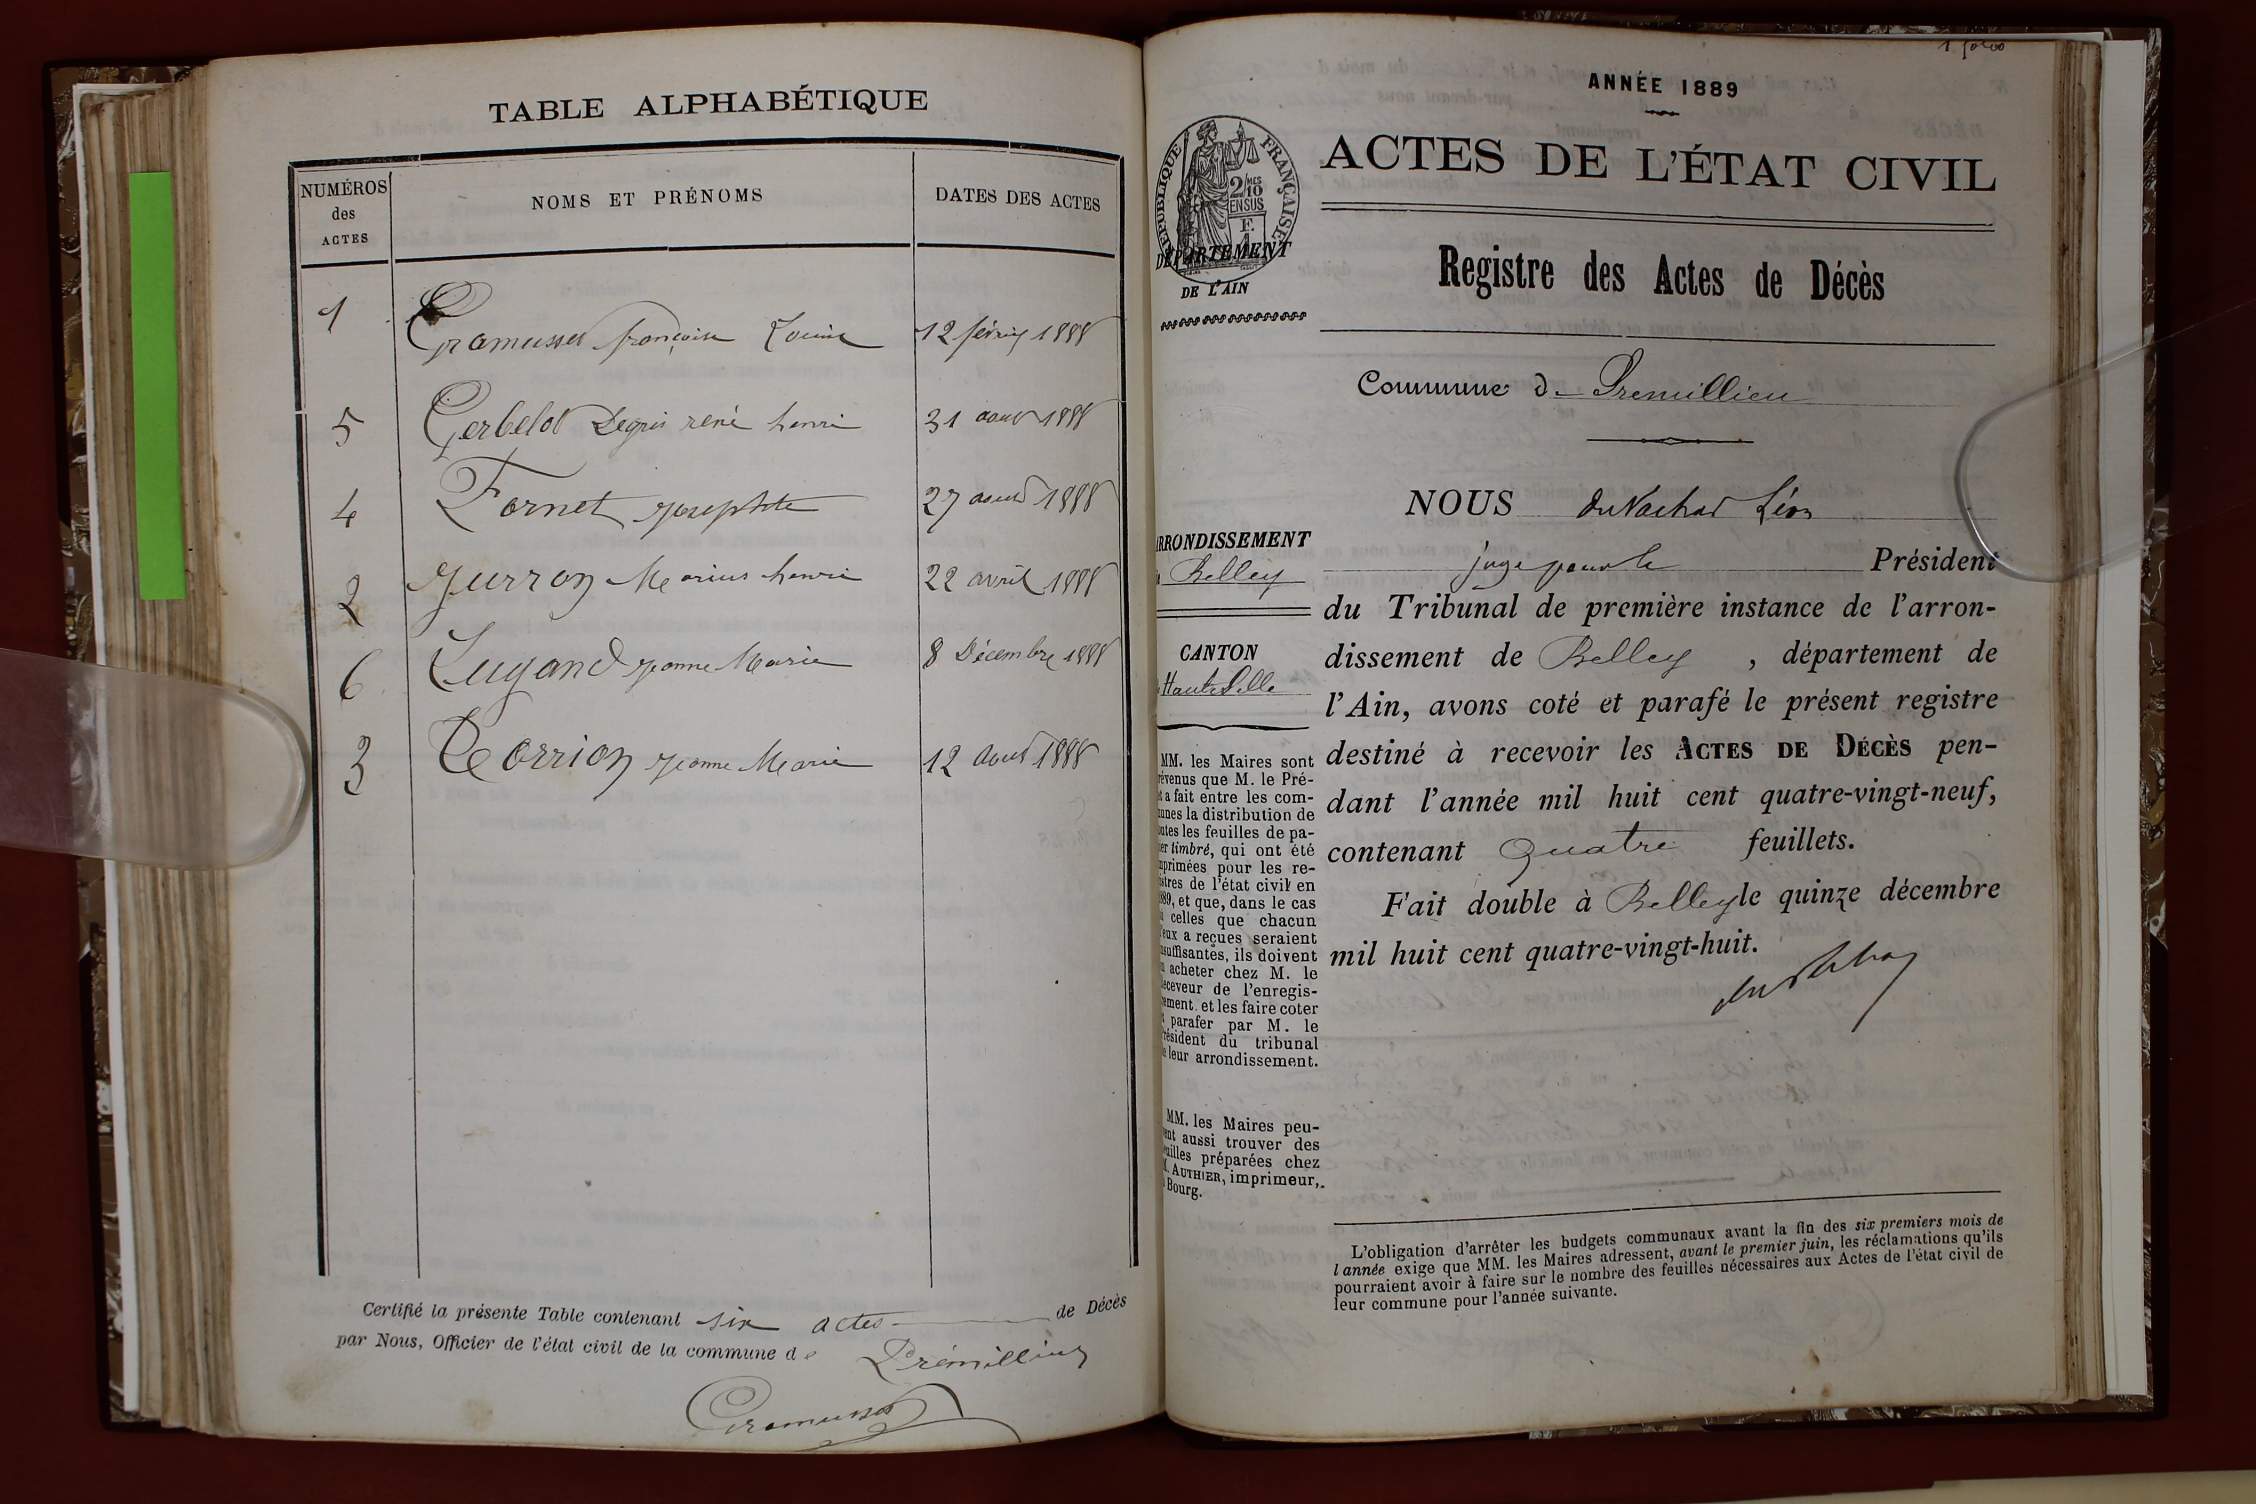 TABLE ALPHABÉTIQUE
NUMÉROS
des
ACTES
NOMS ET PRÉNOMS
DATES DES ACTES
1 Gramusset françoise Louise 12 février 1888
5 Gerbelot Degris rené henri 31 aout 1888
4 Fornet Josephte 27 aout 1888
2 Jurron Marius henri 22 avril 1888
6 Lugand Jeanne Marie 8 Décembre 1888
3 Torrion Jeanne Marie 12 aout 1888
Certifié la présente Table contenant six actes de Décès
par Nous, Officier de l'état civil de la commune de Prémillieu
Gramusset
ANNÉE 1889
ACTES DE L'ÉTAT CIVIL
RÉPUBLIQUE FRANÇAISE
2/10
EN SUS
DÉPARTEMENT
DE L'AIN
Registre des Actes de Décès
Commune de Premillieu
ARRONDISSEMENT
Belley
CANTON
Hauteville
MM. les Maires sont
prévenus que M. le Pré-
fet a fait entre les com-
munes la distribution de
toutes les feuilles de pa-
pier timbré, qui ont été
imprimées pour les re-
gistres de l'état civil en
1889, et que, dans le cas
où celles que chacun
d'eux a reçues seraient
insuffisantes, ils doivent
en acheter chez M. le
Receveur de l'enregis-
trement et les faire coter
et parafer par M. le
Président du tribunal
de leur arrondissement.
MM. les Maires peu-
vent aussi trouver des
feuilles préparées chez
M. AUTHIER, imprimeur,
à Bourg.
NOUS Léon
juge pour le Président
du Tribunal de première instance de l'arron-
dissement de Belley, département de
l'Ain, avons coté et parafé le présent registre
destiné à recevoir les ACTES DE DÉCÈS pen-
dant l'année mil huit cent quatre-vingt-neuf,
contenant quatre feuillets.
Fait double à Belley le quinze décembre
mil huit cent quatre-vingt-huit.
L'obligation d'arrêter les budgets communaux avant la fin des six premiers mois de
l'année exige que MM. les Maires adressent, avant le premier juin, les réclamations qu'ils
pourraient avoir à faire sur le nombre des feuilles nécessaires aux Actes de l'état civil de
leur commune pour l'année suivante.